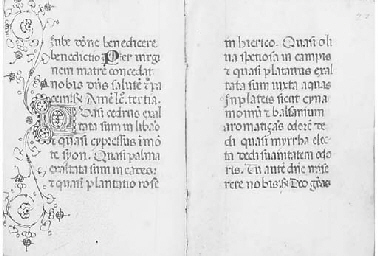 Iube dõne benedicere
benedictio Per virgi
nem matrẽ concedat
nobis dñs salutẽ ⁊ pa
cem Amẽ lc̃. tertia.
Quasi cedrus exal
tata sum in liban̄o
⁊ quasi cypressus ĩ mõ
te syon. Quasi palma
exaltata sum in cades
⁊ quasi plantatio rose
in hierico. Quasi oli
ua speciosa in campis
⁊ quasi platanus exal
tata sum iuxta aquas
in plateis sicut cyna
momũ ⁊ balsamum
aromatiçãs odorẽ de
di quasi myrrha elec
ta dedi suauitatem odo
ris. Tu autẽ dñe mise
rere nobis Deo grãs